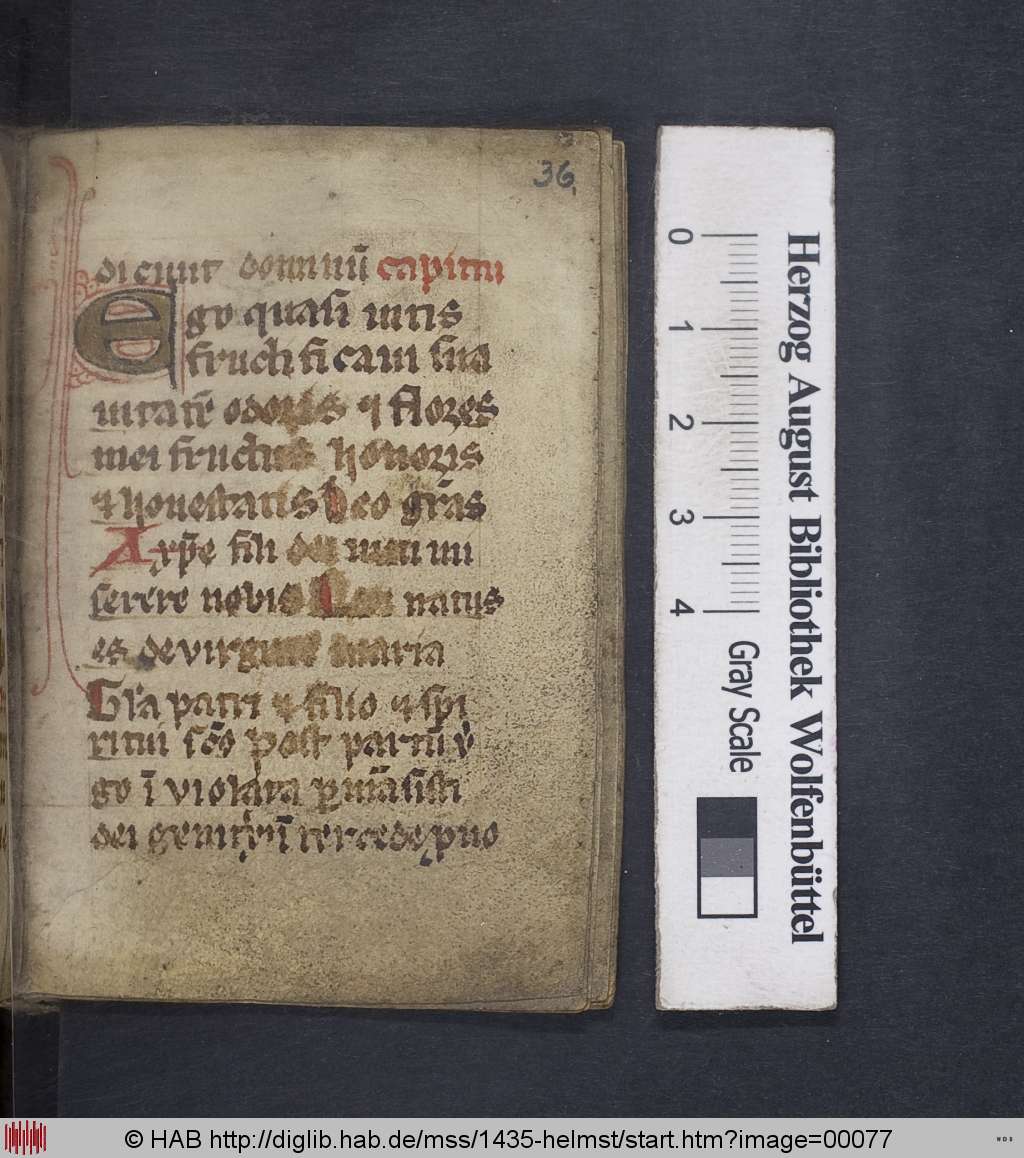 36
dicunt dominū capitlū
Ego quasi vitis
fructificaui sua
uitatē odoris ⁊ flores
mei fructus honoris
⁊ honestatis Deo gr̄as
xp̄e fili dei uiui mi
serere nobis natus
es de virgine maria
Gl̄a patri ⁊ filio ⁊ spi
ritui sc̄o Post partū v̓
go īviolata ꝑmāsisti
dei genitͥx ītercede ꝓ no
0 1 2 3 4
Gray Scale
Herzog August Bibliothek Wolfenbüttel
© HAB http://diglib.hab.de/mss/1435-helmst/start.htm?image=00077